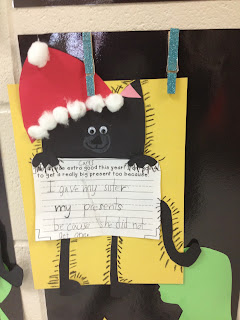 extra good this year
to get a really big present too because
I gave my sister
my presents
because she did not
get one